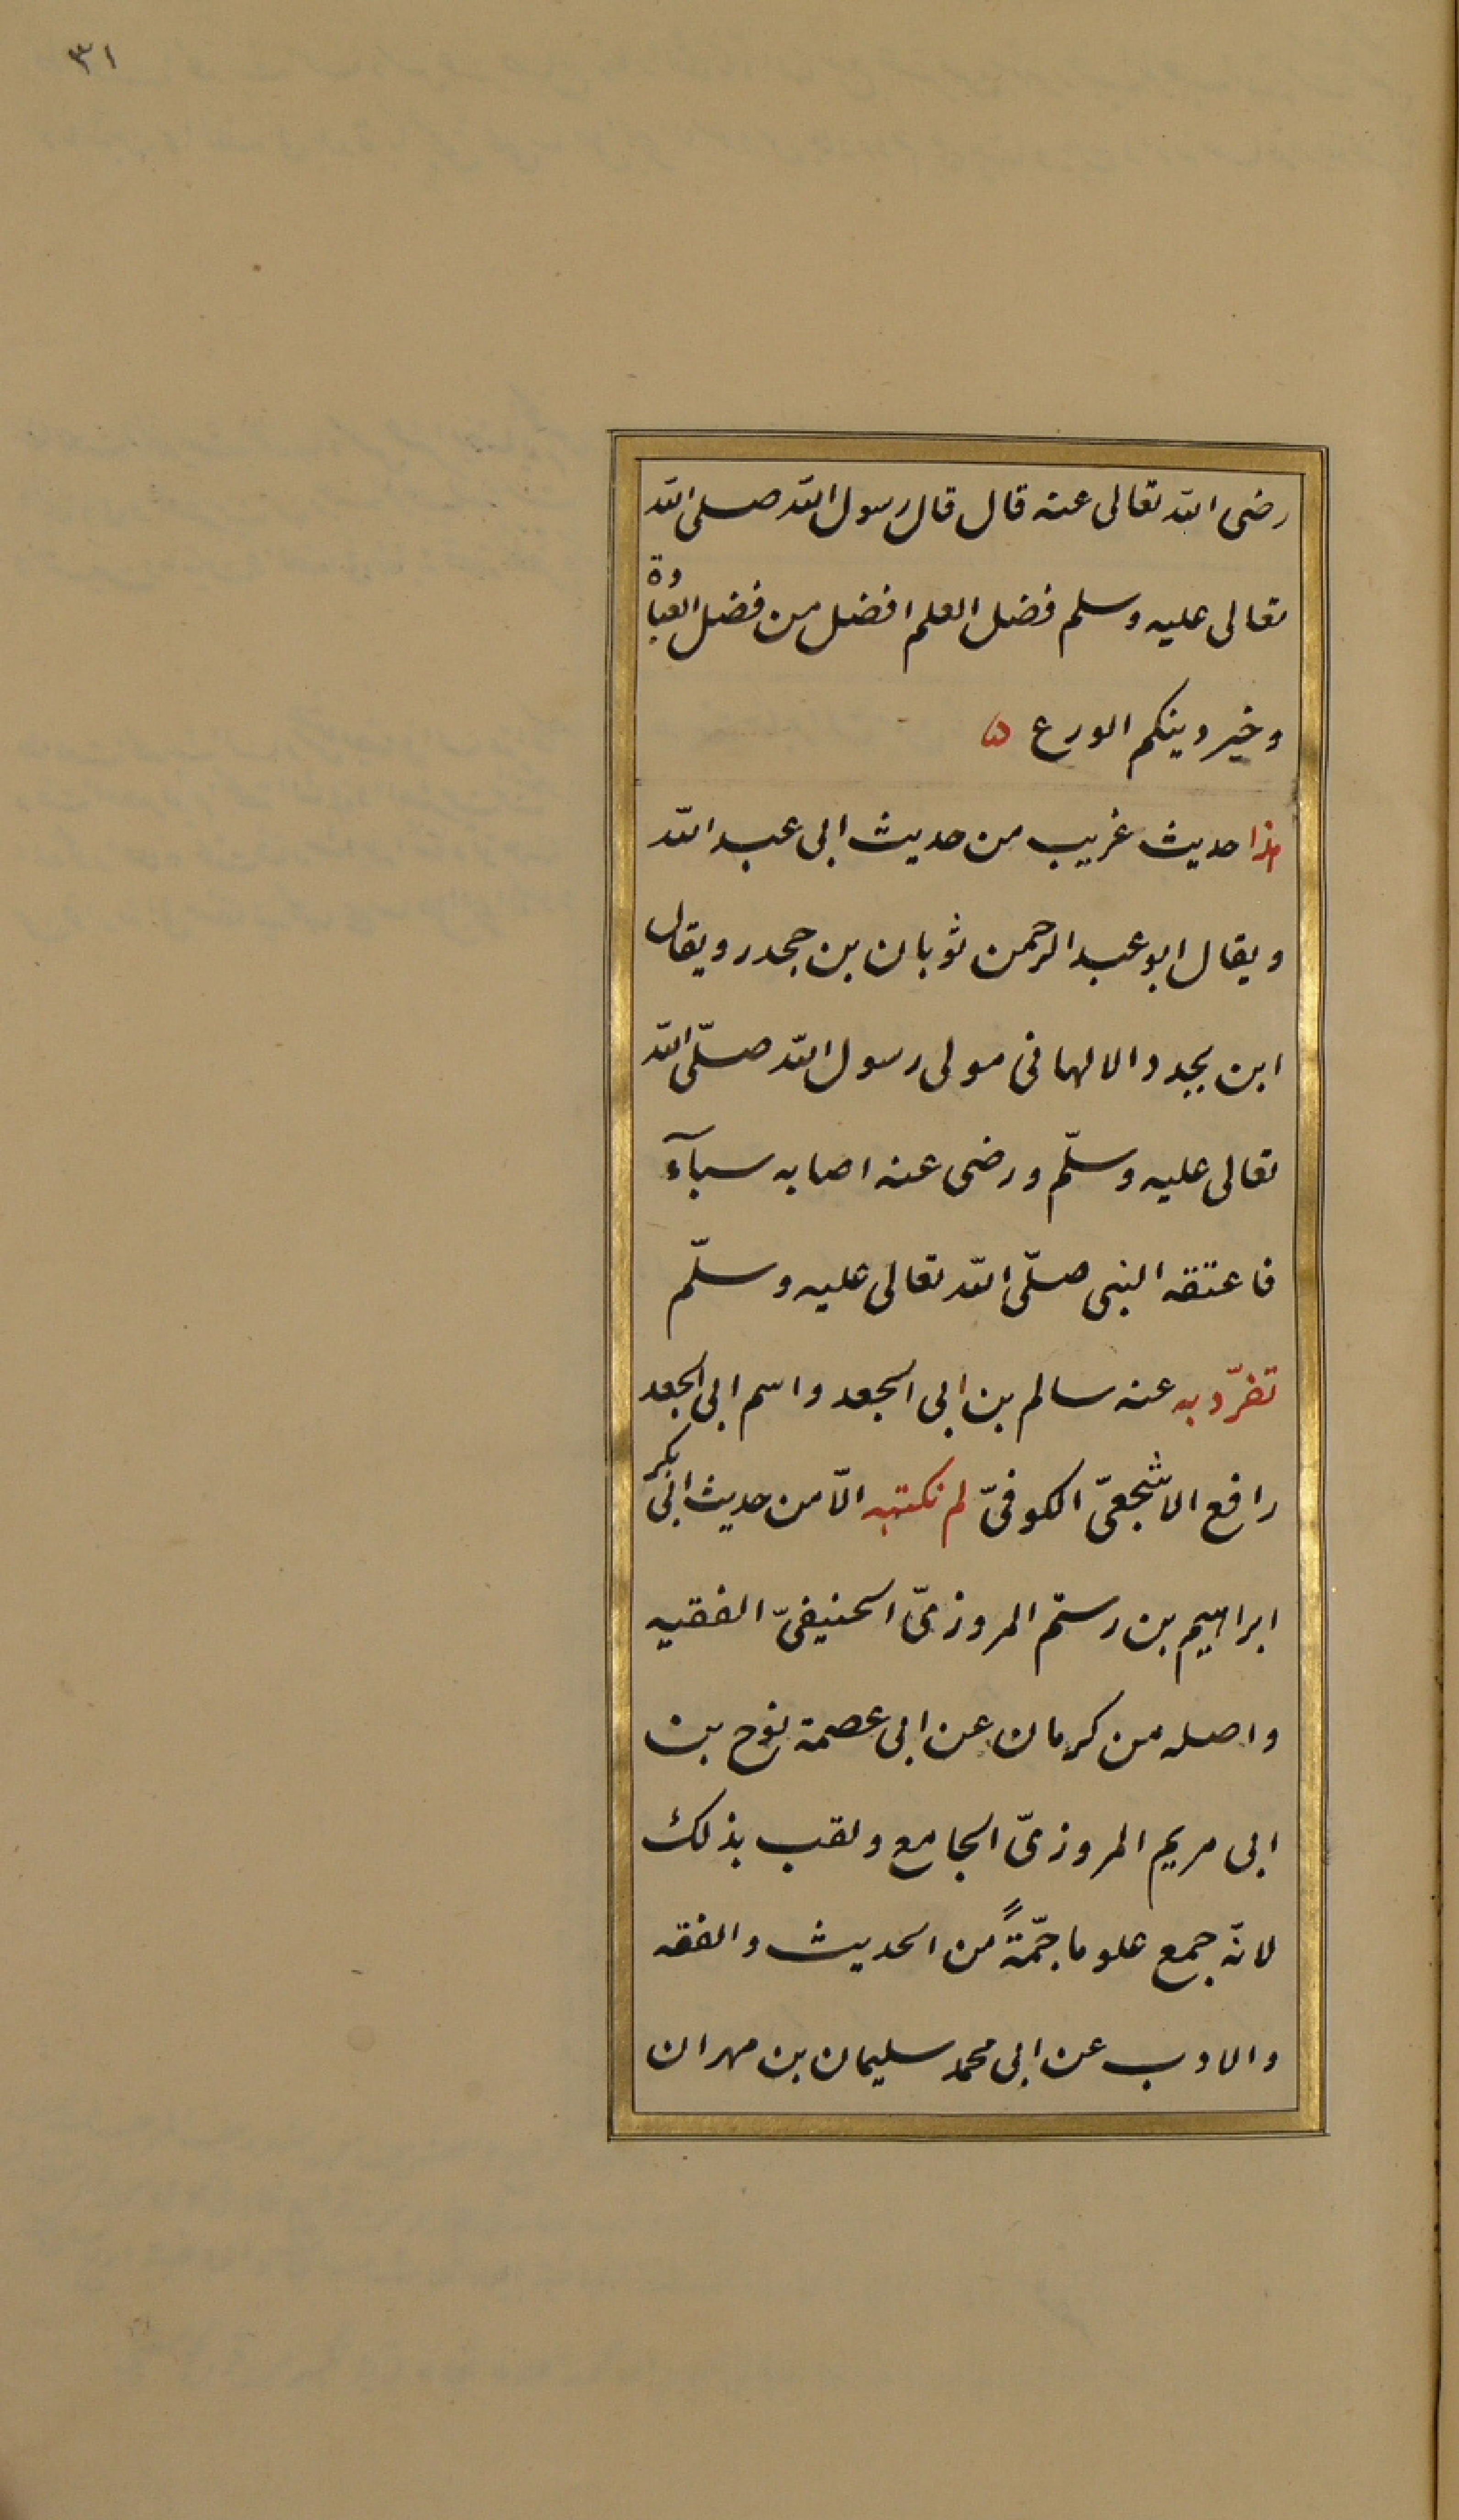 ٣١
رضى الله تعالى عنه قال قال رسول الله صلى الله
تعالى عليه وسلم فضل العلم افضل من فضل العبادة
وخير دينكم الورع ه
هذا حديث غريب من حديث ابى عبد الله
ويقال ابو عبد الرحمن ثوبان بن جحدر ويقال
ابن بجدد الالهانى مولى رسول الله صلّى الله
تعالى عليه وسلّم ورضى عنه اصابه سبآء
فاعتقه النبى صلّى الله تعالى عليه وسلّم
تفرّد به عنه سالم بن ابى الجعد واسم ابى الجعد
رافع الاشجعىّ الكوفىّ لم نكتبه الّا من حديث ابى بكر
ابراهيم بن رستم المروزىّ الحنيفىّ الفقيه
واصله من كرمان عن ابى عصمة نوح بن
ابى مريم المروزىّ الجامع ولقب بذلك
لانّه جمع علوما جمّةً من الحديث والفقه
والادب عن ابى محمد سليمان بن مهران